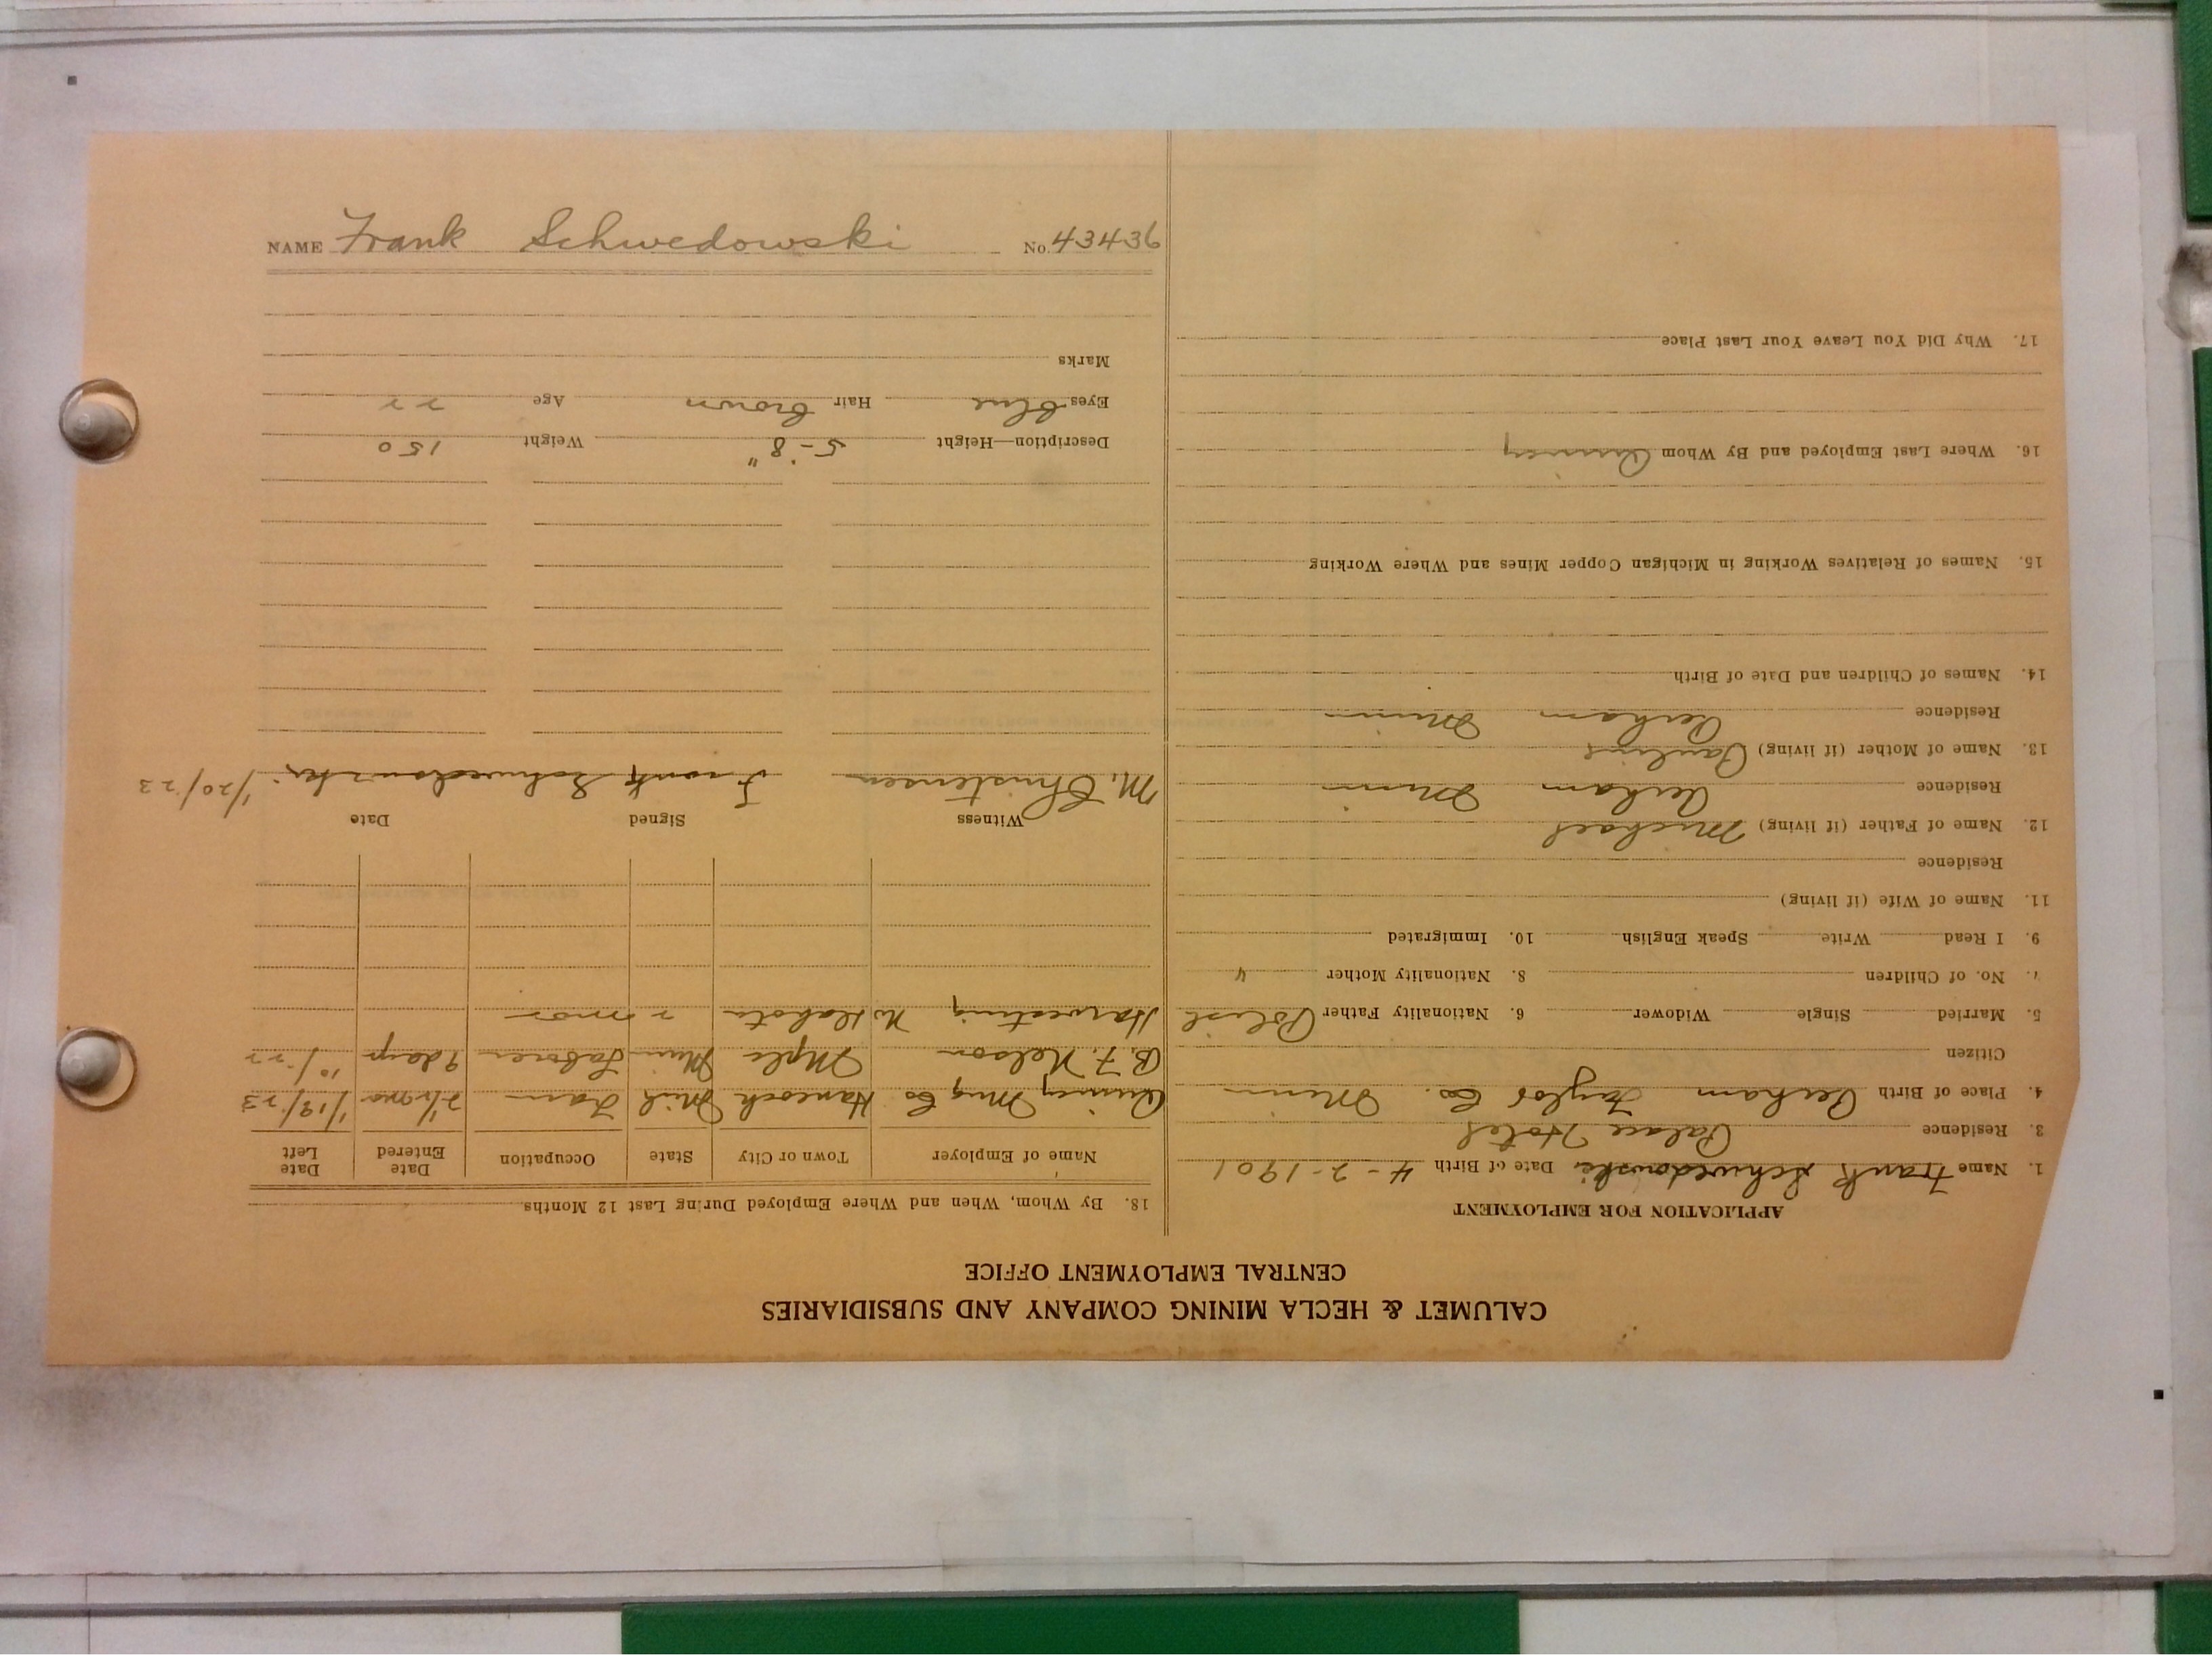 NAME Frank Schwedowski No. 43436
CALUMET & HECLA MINING COMPANY AND SUBSIDIARIES
CENTRAL EMPLOYMENT OFFICE
APPLICATION FOR EMPLOYMENT
1. Name Frank Schwedowski Date of Birth 4-2-1901
3. Residence Palace Hotel
4. Place of Birth Perham Taylor Co. Minn
Citizen
5. Married Single Widower 6. Nationality Father Polish
7. No. of Children 8. Nationality Mother "
9. I Read Write Speak English 10. Immigrated
11. Name of Wife (if living)
Residence
12. Name of Father (if living) Michael
Residence Perham Minn
13. Name of Mother (if living) Pauline
Residence Perham Minn
14. Names of Children and Date of Birth
15. Names of Relatives Working in Michigan Copper Mines and Where Working
16. Where Last Employed and By Whom Quincy
17. Why Did You Leave Your Last Place
18. By Whom, When and Where Employed During Last 12 Months
Name of Employer Town or City State Occupation Date Entered Date Left
Quincy Mng Co Hancock Mich Tram 2 1/2 mo 1/19/23
B. F. Nelson Mpls Minn Laborer 9 days 10/22
Harvesting No Dakota 2 mos
Witness Signed Date
M. Christensen Frank Schwedowski 1/20/23
Description—Height 5-8" Weight 150
Eyes blue Hair brown Age 22
Marks